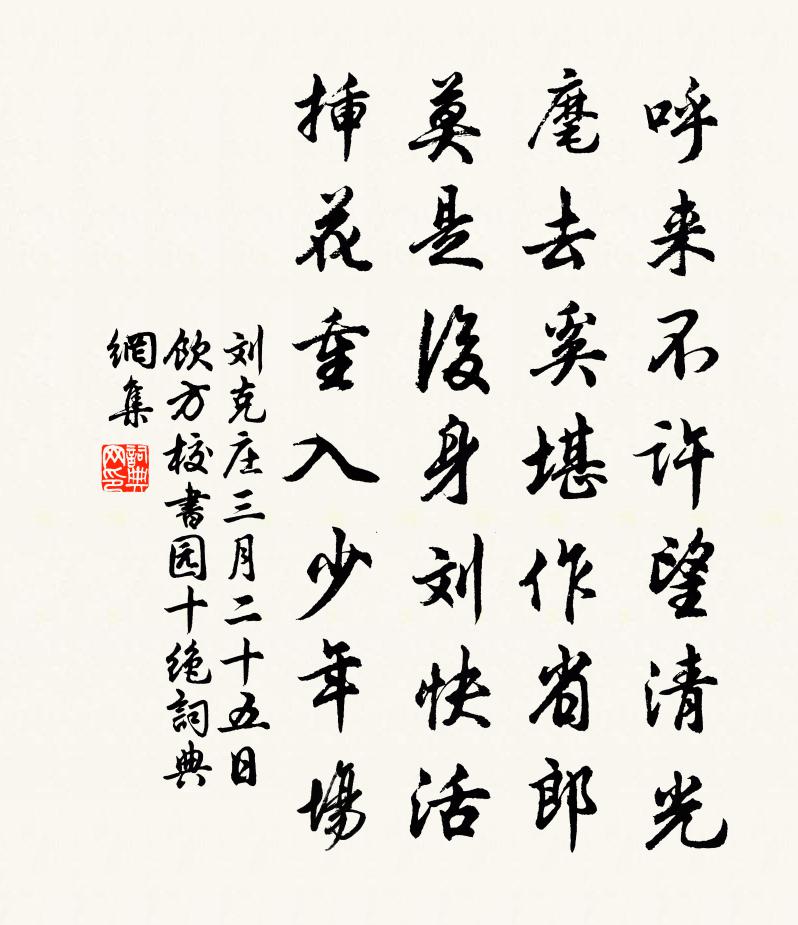 呼来不许望清光
麾去奚堪作省郎
莫是後身刘快活
挿花重入少年場
刘克庄三月二十五日
飲方校書园十绝詞典
網集
詞典
网印